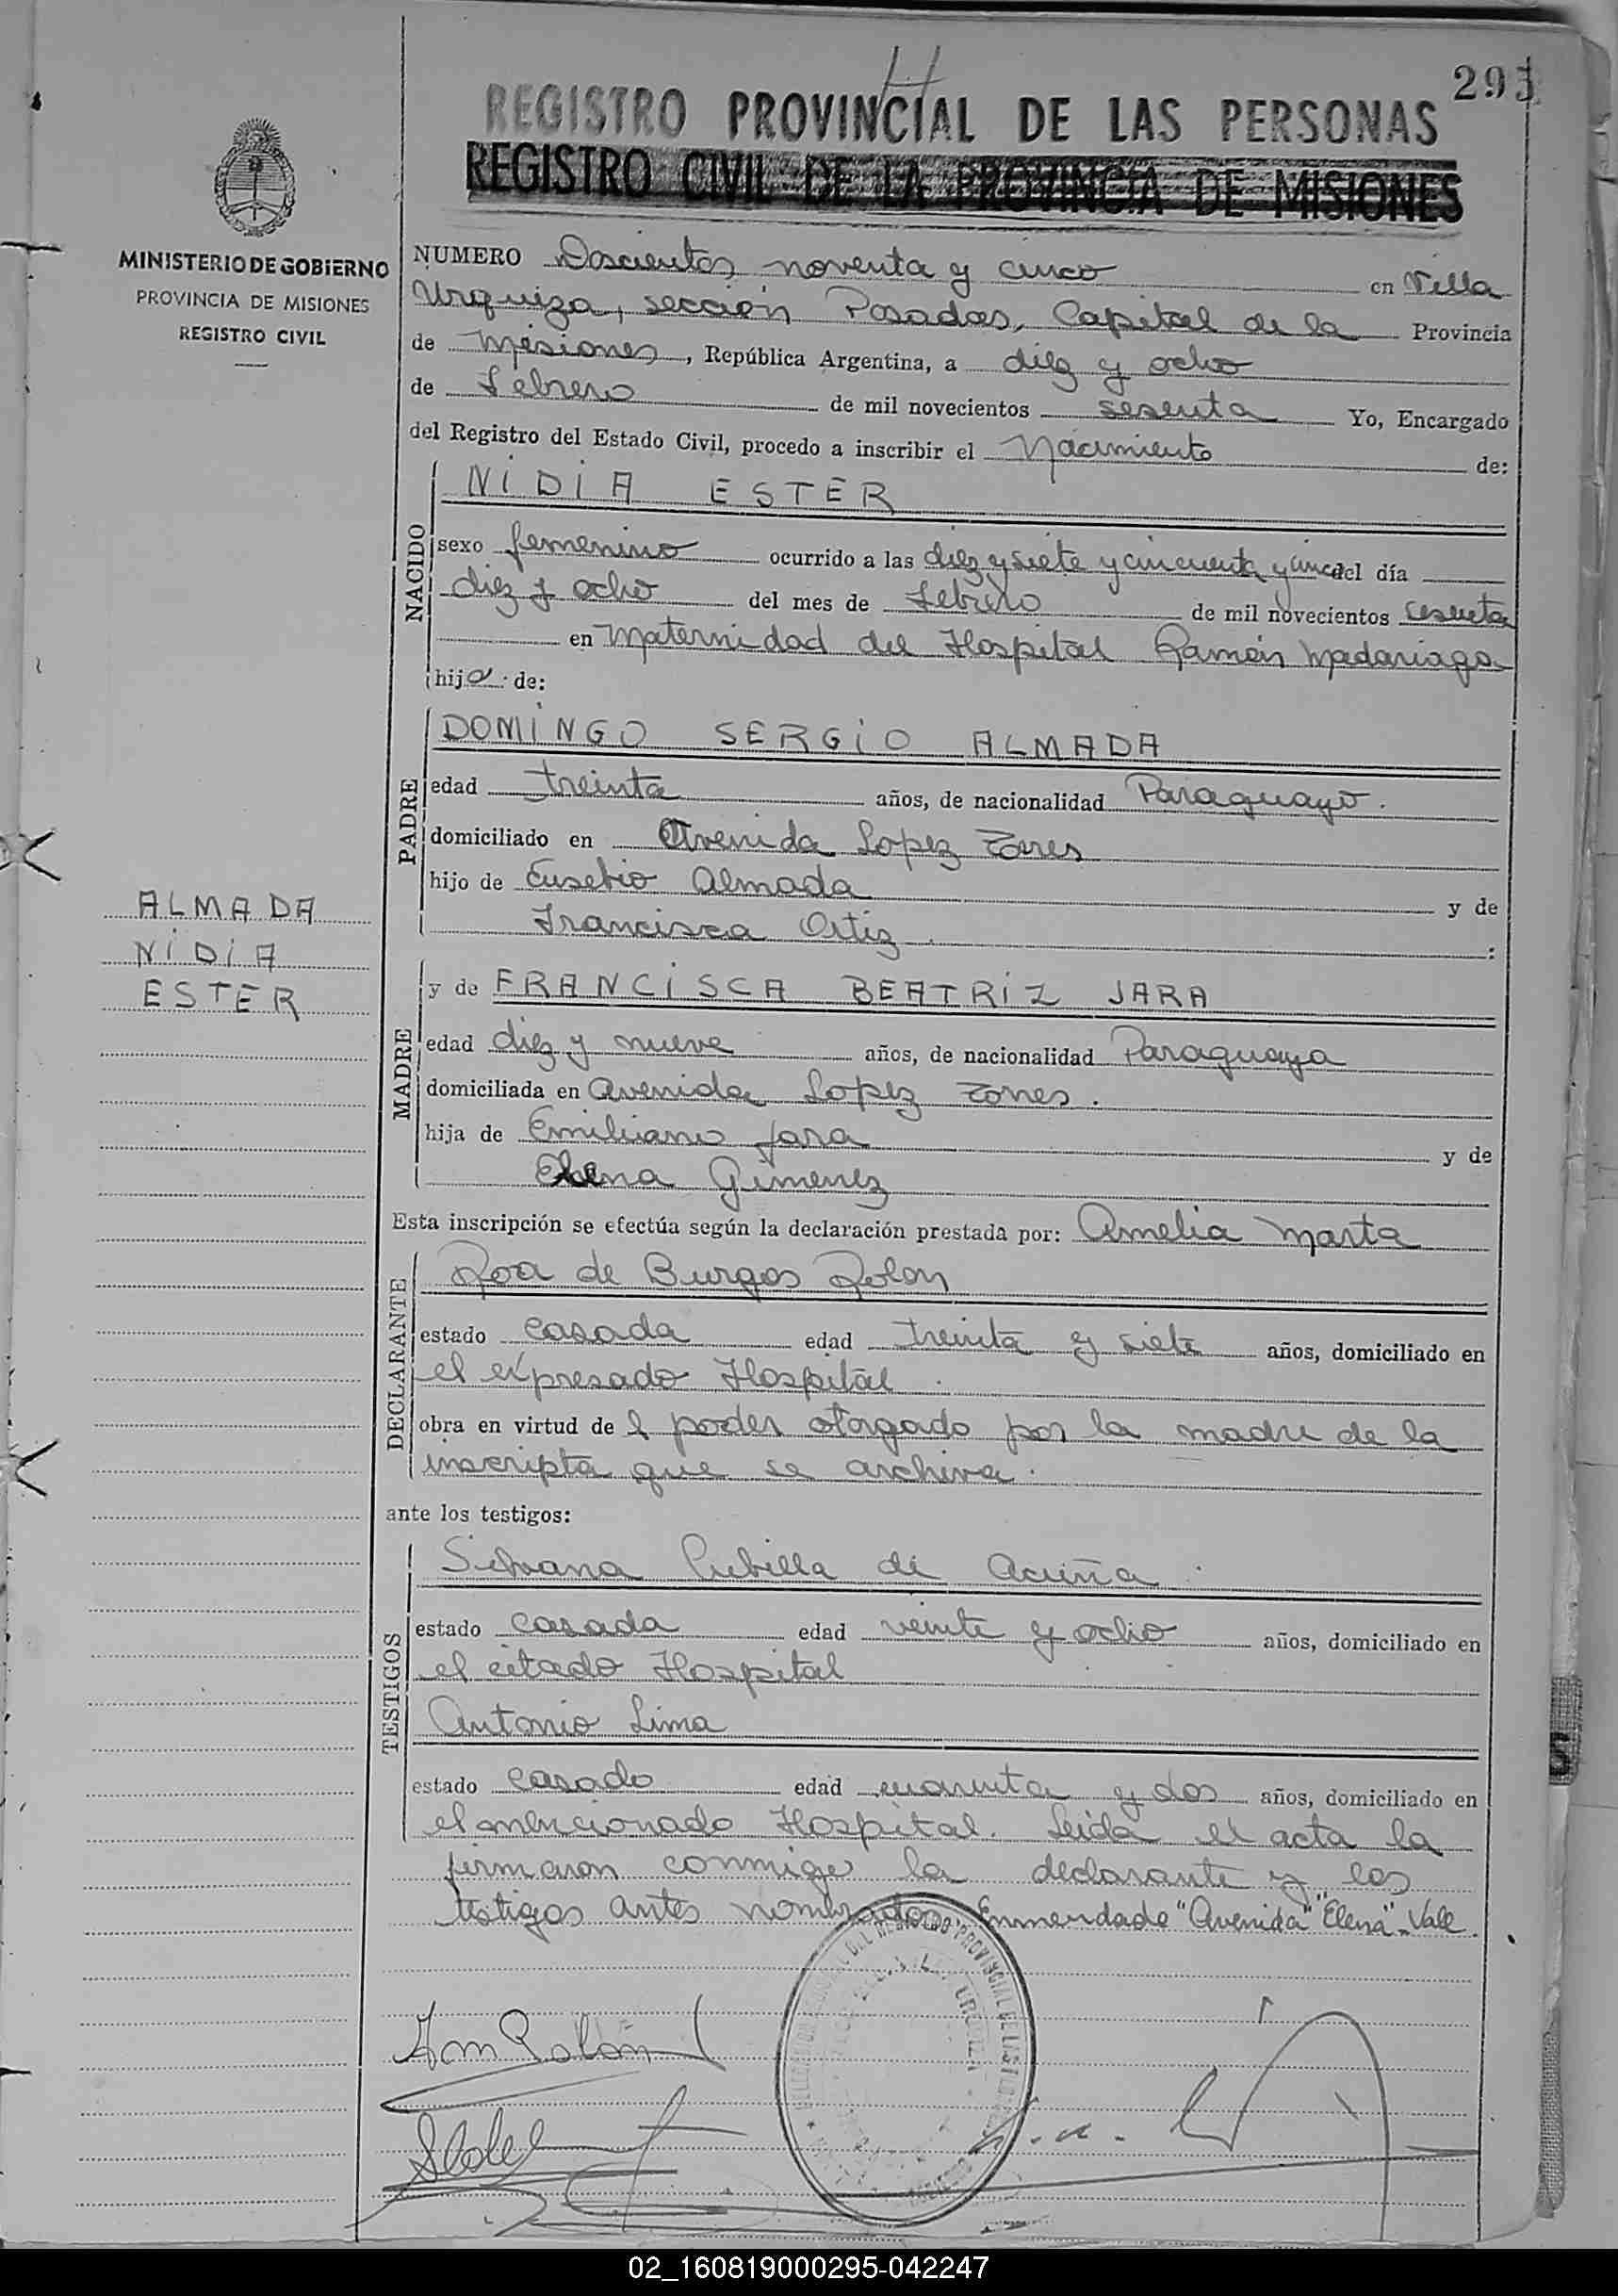 295
REGISTRO PROVINCIAL DE LAS PERSONAS
REGISTRO CIVIL DE LA PROVINCIA DE MISIONES
MINISTERIO DE GOBIERNO
PROVINCIA DE MISIONES
REGISTRO CIVIL
NUMERO Doscientos noventa y cinco en Villa
Urquiza, sección Posadas, Capital de la Provincia
de Misiones, República Argentina, a diez y ocho
de Febrero de mil novecientos sesenta Yo, Encargado
del Registro del Estado Civil, procedo a inscribir el Nacimiento de:
NACIDO
NIDIA ESTER
sexo femenino ocurrido a las diez y siete y cincuenta y cinco del día
diez y ocho del mes de Febrero de mil novecientos sesenta
en Maternidad del Hospital Ramón Madariaga
hija de:
PADRE
DOMINGO SERGIO ALMADA
edad treinta años, de nacionalidad Paraguayo.
domiciliado en Avenida Lopez Torres
hijo de Eusebio Almada y de
Francisca Ortiz :
ALMADA
NIDIA
ESTER
MADRE
y de FRANCISCA BEATRIZ JARA
edad diez y nueve años, de nacionalidad Paraguaya
domiciliada en Avenida Lopez Torres.
hija de Emiliano Jara y de
Elena Gimenez
Esta inscripción se efectúa según la declaración prestada por: Amelia Marta
DECLARANTE
Roa de Burgos Rolon
estado casada edad treinta y siete años, domiciliado en
el expresado Hospital.
obra en virtud del poder otorgado por la madre de la
inscripta que se archiva.
ante los testigos:
TESTIGOS
Silvana Cubilla de Acuña.
estado casada edad veinte y ocho años, domiciliado en
el citado Hospital
Antonio Lima
estado casado edad cuarenta y dos años, domiciliado en
el mencionado Hospital. Leida el acta la
firmaron conmigo la declarante y los
testigos antes nombrados. Enmendado "Avenida" "Elena" Vale.
02_160819000295-042247